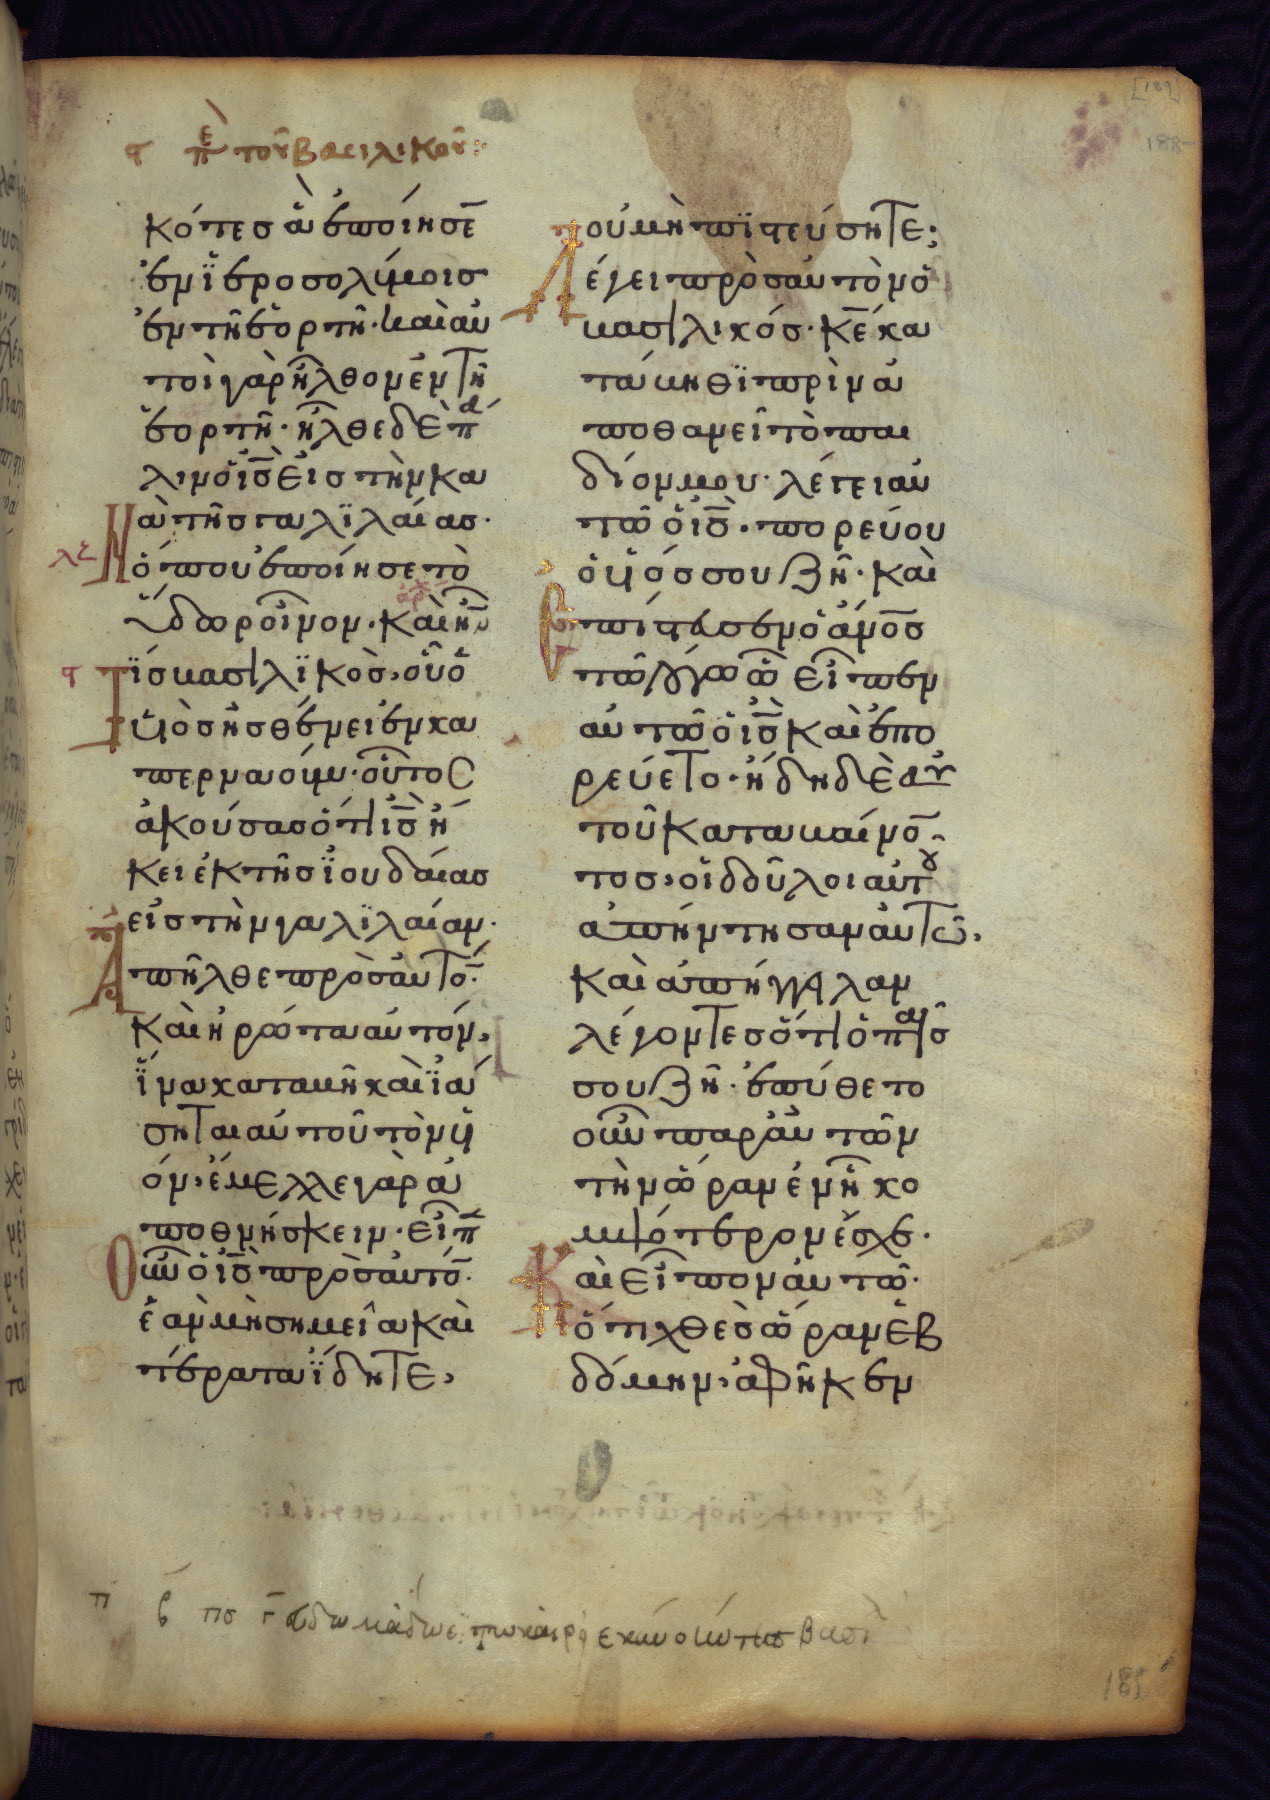 ϛ πε τοῦ βασιλικοῦ:
κότες ἃ ἐποίησε̄
ἐν ἱεροσολύμοις
ἐν τῆ ἑορτῆ· καὶ αὐ
τοὶ γὰρ ἦλθον ἐν τῆ
ἑορτῆ· ἦλθε δὲ πά
λιν ὁ ἰ̅ς̅ εἰς τὴν κα
νὰ τῆς γαλιλαίας·
λζ ὅπου ἐποίησε τὸ
ὕδωρ οἶνον· καὶ ἦν
ϛ Τὶς βασιλικὸς, οὗ ὁ
υἱὸς ἠσθένει ἐν κα
περναούμ· οὗτος
ἀκούσας ὅτι ἰ̅ς̅ ἥ
κει ἐκ τῆς ἰουδαίας
εἰς τὴν γαλιλαίαν·
Ἀπῆλθε πρὸς αὐτό̄·
καὶ ἠρώτα αὐτόν,
ἵνα καταβῆ καὶ ἰά
σηται αὐτοῦ τὸν υἱ
όν, ἔμελλε γὰρ ἀ
ποθνήσκειν· εἶπ̄
Οὖν ὁ ἰ̅ς̅ πρὸς αὐτό̄·
ἐὰν μὴ σημεῖα καὶ
τέρατα ἴδητε,
οὐ μὴ πιστεύσητε;
Λέγει πρὸς αὐτὸν ὁ
βασιλικός· κ̅ε̅ κα
τάβηθι πρὶν ἀ
ποθανεῖ τὸ παι
δίον μου· λέγει αὐ
τῶ ὁ ἰ̅ς̅· πορεύου
ὁ υἱός σου ζῆ· καὶ
Ἐπίστευσεν ὁ ἄνο̅ς̅
τῶ λόγω ὧ εἶπεν
αὐτῶ ὁ ἰ̅ς̅ καὶ ἐπο
ρεύετο· ἤδη δὲ αὐ
τοῦ καταβαίνο̄
τος, οἱ δοῦλοι αὐτοῦ
ἀπήντησαν αὐτῶ,
καὶ ἀπήγγειλαν
λέγοντες ὅτι ὁ παῖς
σου ζῆ· ἐπύθετο
οὖν παρ' αὐτῶν
τὴν ὥραν ἐν ἧ κο
μψότερον ἔσχε·
Καὶ εἶπον αὐτῶ·
ὅτι χθὲς ὥραν ἑβ
δόμην, ἀφῆκεν